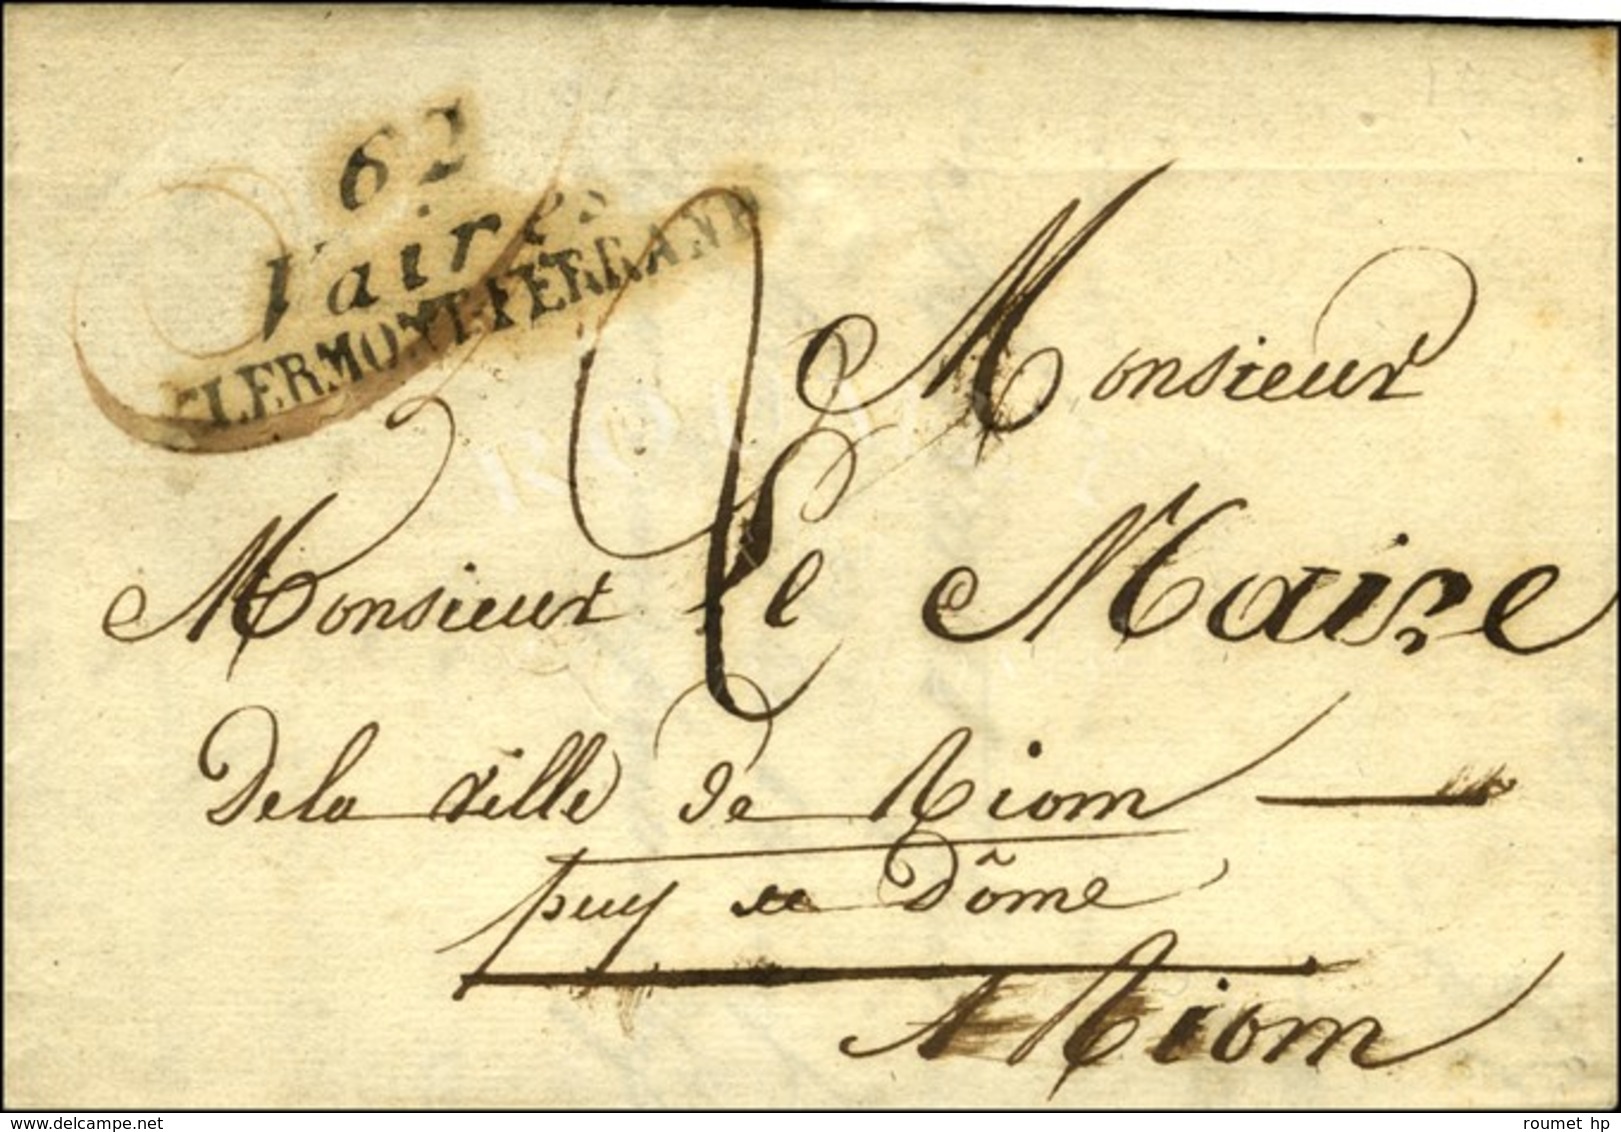 62
Vaires
CLERMONT-FERRAND
Monsieur
Monsieur Le Maire
De la ville de Riom
puy de Dôme
A Riom
roumet hp